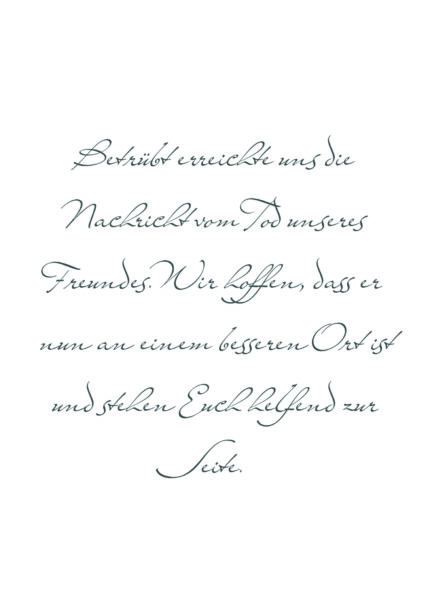 Betrübt erreichte uns die
Nachricht vom Tod unseres
Freundes. Wir hoffen, dass er
nun an einem besseren Ort ist
und stehen Euch helfend zur
Seite.